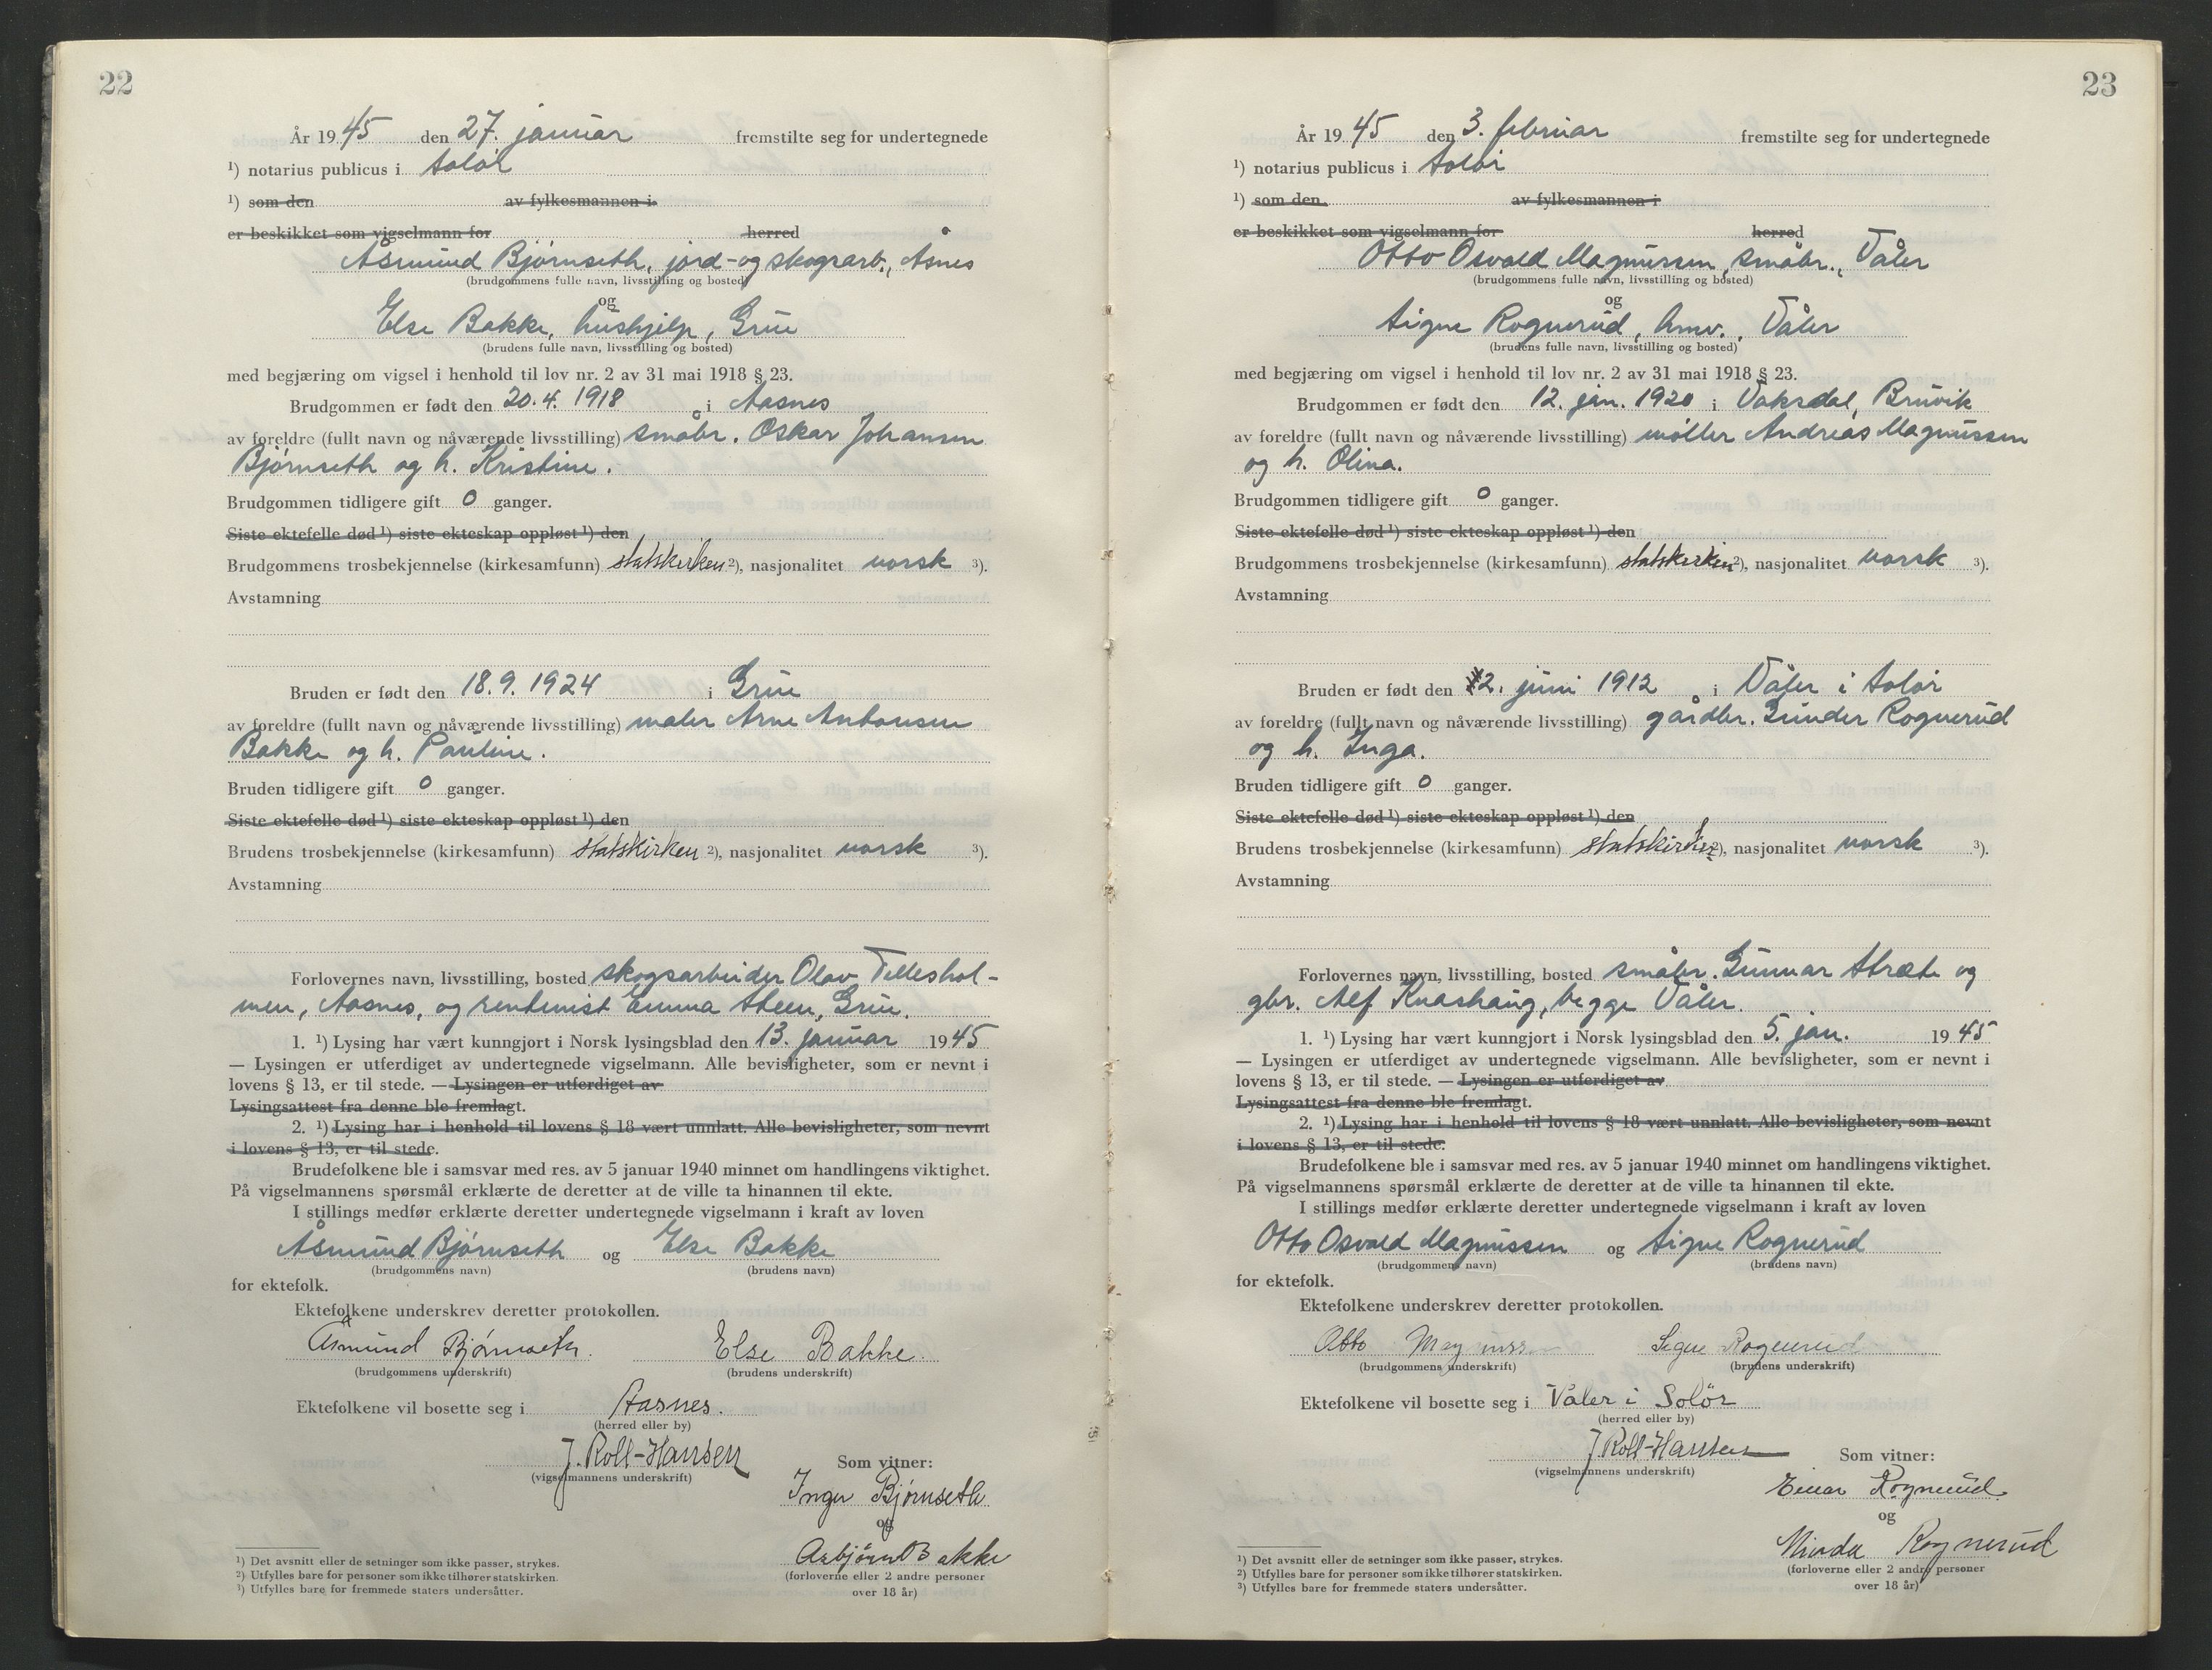 22
År 1945 den 27. januar fremstilte seg for undertegnede
¹) notarius publicus i Solør
¹) som den av fylkesmannen i
er beskikket som vigselmann for herred
Åsmund Bjørnseth, jord- og skogsarb., Åsnes
(brudgommens fulle navn, livsstilling og bosted)
og
Else Bakke, hushjelp, Grue
(brudens fulle navn, livsstilling og bosted)
med begjæring om vigsel i henhold til lov nr. 2 av 31 mai 1918 § 23.
Brudgommen er født den 20.4. 1918 i Aasnes
av foreldre (fullt navn og nåværende livsstilling) småbr. Oskar Johansen
Bjørnseth og h. Kristine.
Brudgommen tidligere gift 0 ganger.
Siste ektefelle død ¹) siste ekteskap oppløst ¹) den
Brudgommens trosbekjennelse (kirkesamfunn) statskirken ²), nasjonalitet norsk ³).
Avstamning
Bruden er født den 18.9. 1924 i Grue
av foreldre (fullt navn og nåværende livsstilling) maler Arne Antonsen
Bakke og h. Pauline.
Bruden tidligere gift 0 ganger.
Siste ektefelle død ¹) siste ekteskap oppløst ¹) den
Brudens trosbekjennelse (kirkesamfunn) statskirken ²), nasjonalitet norsk ³).
Avstamning
Forlovernes navn, livsstilling, bosted skogsarbeider Olav Telleshol-
men, Aasnes, og rentenist Emma Steen, Grue.
1. ¹) Lysing har vært kunngjort i Norsk lysingsblad den 13. januar 1945
— Lysingen er utferdiget av undertegnede vigselmann. Alle bevisligheter, som er nevnt i
lovens § 13, er til stede. — Lysingen er utferdiget av
Lysingsattest fra denne ble fremlagt.
2. ¹) Lysing har i henhold til lovens § 18 vært unnlatt. Alle bevisligheter, som nevnt
i lovens § 13, er til stede.
Brudefolkene ble i samsvar med res. av 5 januar 1940 minnet om handlingens viktighet.
På vigselmannens spørsmål erklærte de deretter at de ville ta hinannen til ekte.
I stillings medfør erklærte deretter undertegnede vigselmann i kraft av loven
Åsmund Bjørnseth og Else Bakke
(brudgommens navn) (brudens navn)
for ektefolk.
Ektefolkene underskrev deretter protokollen.
Åsmund Bjørnseth. Else Bakke.
(brudgommens underskrift) (brudens underskrift)
Ektefolkene vil bosette seg i Aasnes.
(herred eller by)
J. Roll-Hansen
(vigselmannens underskrift)
Som vitner:
Inger Bjørnseth
og
Asbjørn Bakke
(forloverne eller 2 andre personer
over 18 år)
¹) Det avsnitt eller de setninger som ikke passer, strykes.
²) Utfylles bare for personer som ikke tilhører statskirken.
³) Utfylles bare for fremmede staters undersåtter.
23
År 1945 den 3. februar fremstilte seg for undertegnede
¹) notarius publicus i Solør
¹) som den av fylkesmannen i
er beskikket som vigselmann for herred
Otto Osvald Magnussen, småbr., Våler
(brudgommens fulle navn, livsstilling og bosted)
og
Signe Rognerud, hmv., Våler
(brudens fulle navn, livsstilling og bosted)
med begjæring om vigsel i henhold til lov nr. 2 av 31 mai 1918 § 23.
Brudgommen er født den 12. jan. 1920 i Vaksdal, Bruvik
av foreldre (fullt navn og nåværende livsstilling) møller Andreas Magnussen
og h. Olina.
Brudgommen tidligere gift 0 ganger.
Siste ektefelle død ¹) siste ekteskap oppløst ¹) den
Brudgommens trosbekjennelse (kirkesamfunn) statskirken ²), nasjonalitet norsk ³).
Avstamning
Bruden er født den 2. juni 1912 i Våler i Solør
av foreldre (fullt navn og nåværende livsstilling) gårdbr. Gunder Rognerud
og h. Inga.
Bruden tidligere gift 0 ganger.
Siste ektefelle død ¹) siste ekteskap oppløst ¹) den
Brudens trosbekjennelse (kirkesamfunn) statskirken ²), nasjonalitet norsk ³).
Avstamning
Forlovernes navn, livsstilling, bosted småbr. Gunnar Stræte og
gbr. Alf Knashaug, begge Våler.
1. ¹) Lysing har vært kunngjort i Norsk lysingsblad den 5. jan. 1945
— Lysingen er utferdiget av undertegnede vigselmann. Alle bevisligheter, som er nevnt i
lovens § 13, er til stede. — Lysingen er utferdiget av
Lysingsattest fra denne ble fremlagt.
2. ¹) Lysing har i henhold til lovens § 18 vært unnlatt. Alle bevisligheter, som nevnt
i lovens § 13, er til stede.
Brudefolkene ble i samsvar med res. av 5 januar 1940 minnet om handlingens viktighet.
På vigselmannens spørsmål erklærte de deretter at de ville ta hinannen til ekte.
I stillings medfør erklærte deretter undertegnede vigselmann i kraft av loven
Otto Osvald Magnussen og Signe Rognerud
(brudgommens navn) (brudens navn)
for ektefolk.
Ektefolkene underskrev deretter protokollen.
Otto Magnuss Signe Rognerud
(brudgommens underskrift) (brudens underskrift)
Ektefolkene vil bosette seg i Våler i Solör
(herred eller by)
J. Roll-Hansen
(vigselmannens underskrift)
Som vitner:
Einar Rognerud.
og
Minda Rognerud
(forloverne eller 2 andre personer
over 18 år)
¹) Det avsnitt eller de setninger som ikke passer, strykes.
²) Utfylles bare for personer som ikke tilhører statskirken.
³) Utfylles bare for fremmede staters undersåtter.